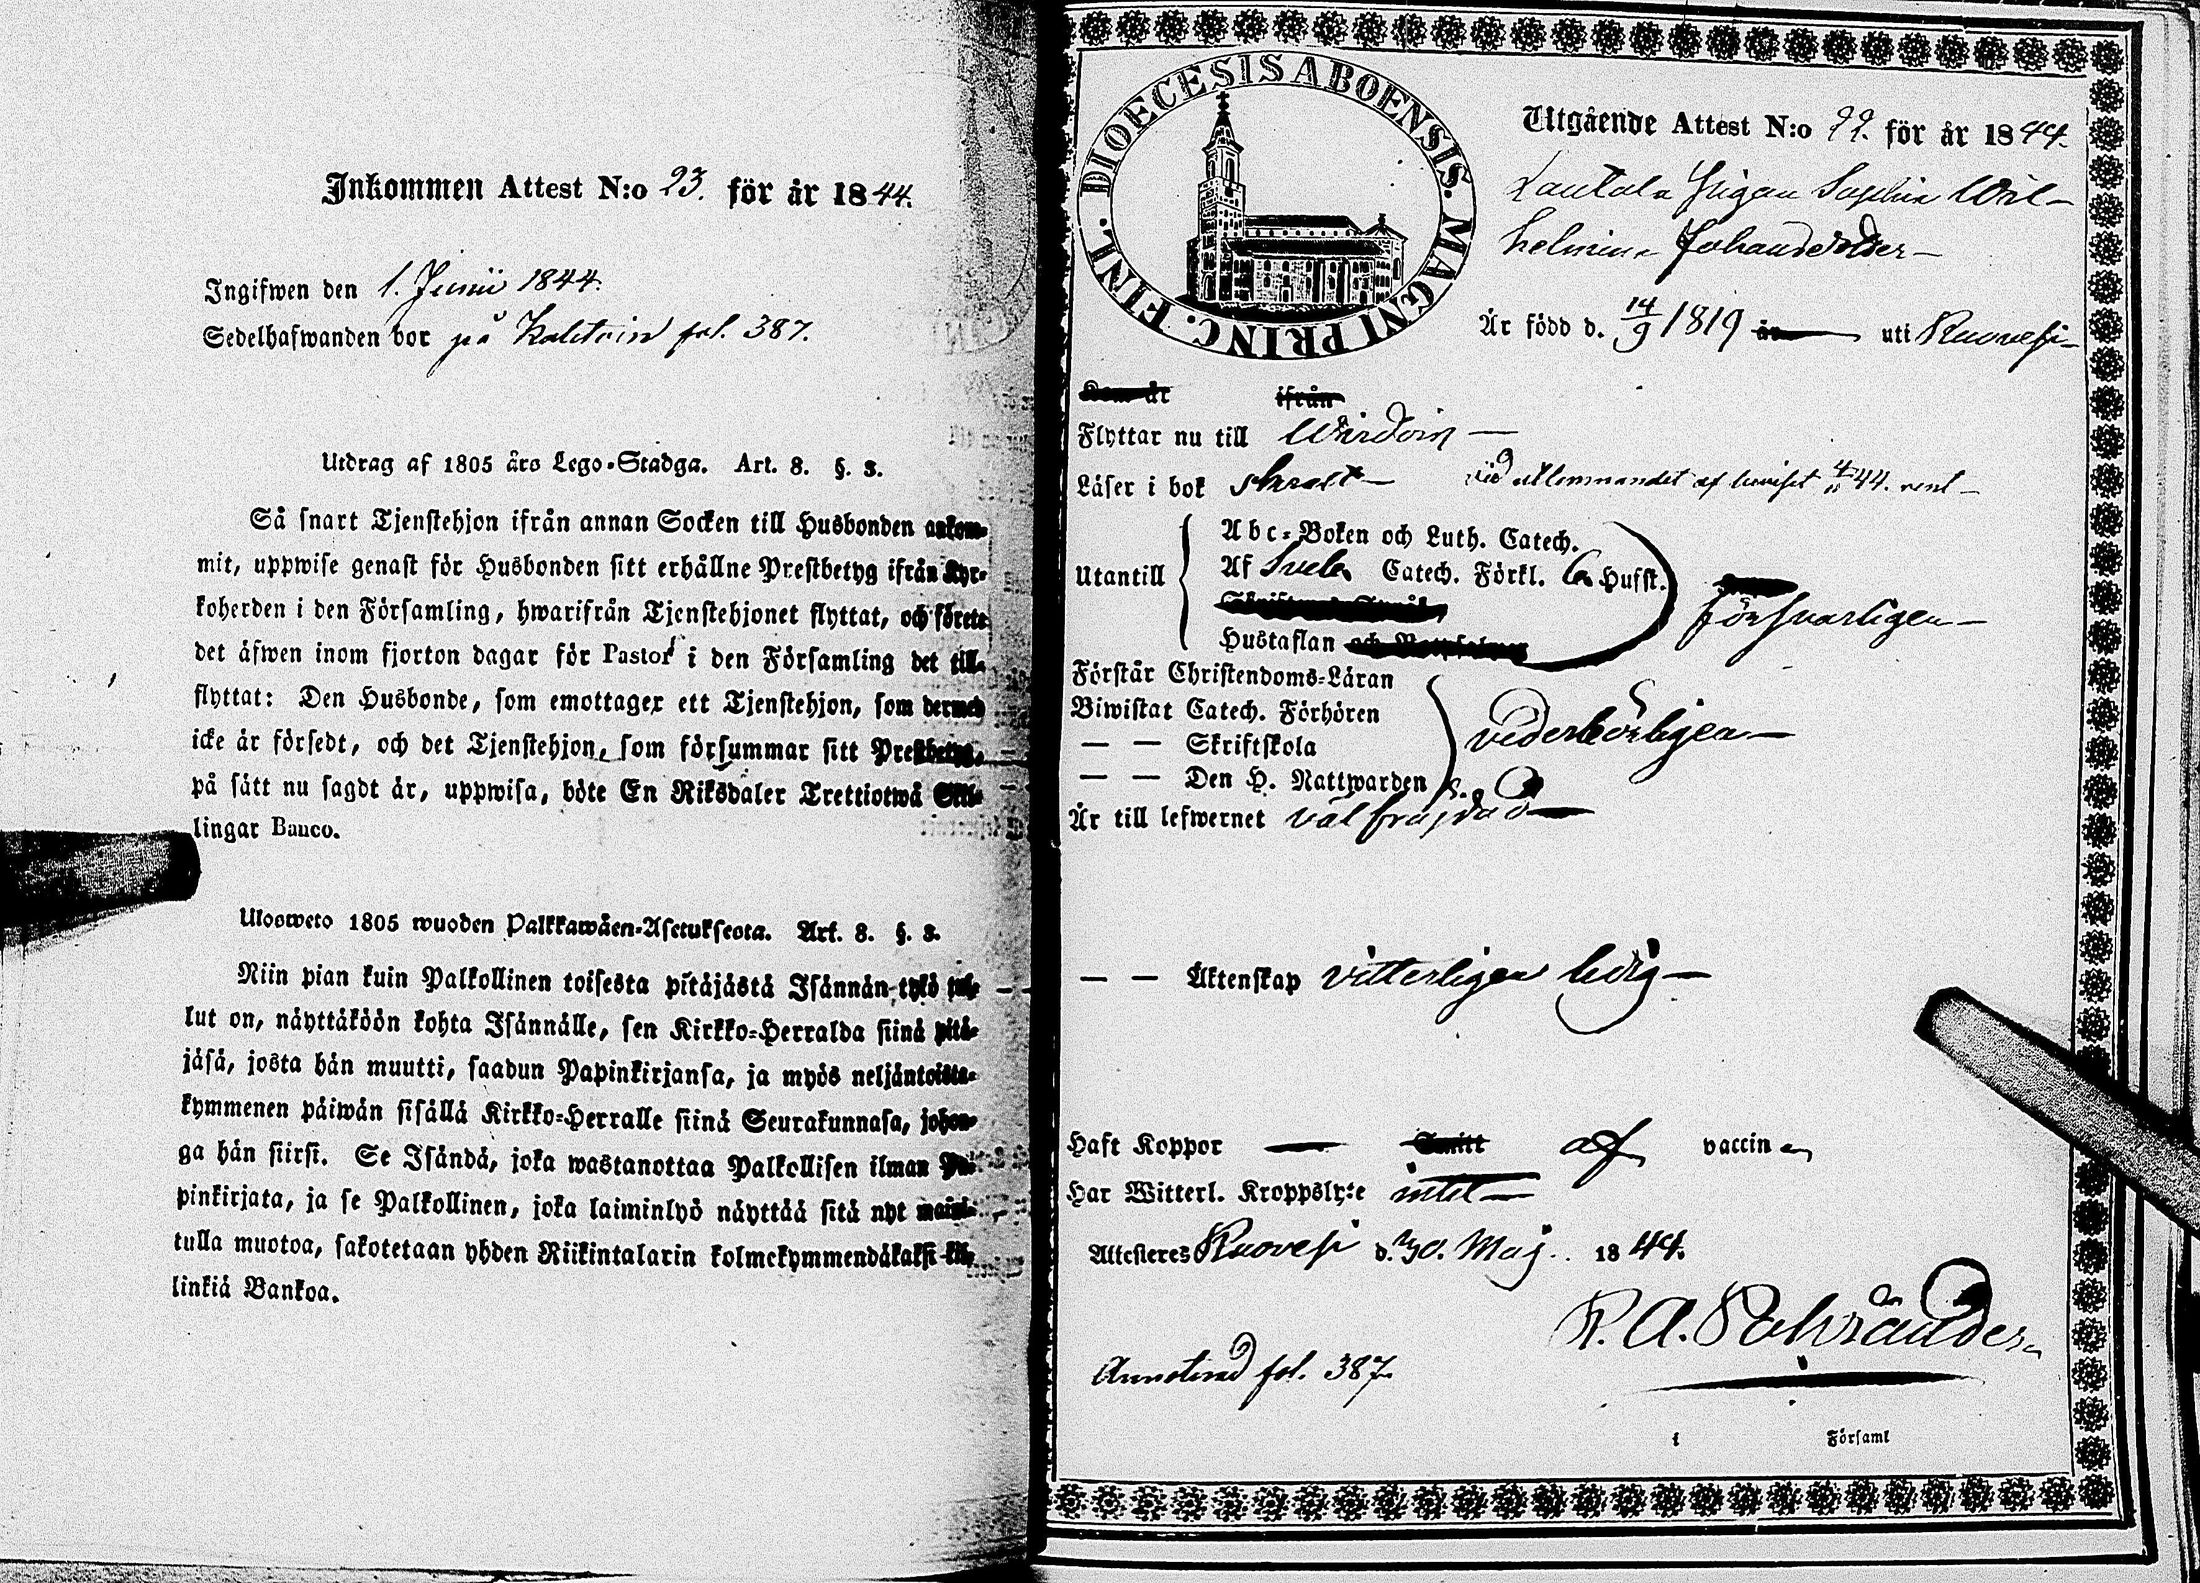 Inkommen Attest N:o 23. för år 1844.
Ingifwen den 1. Junii 1844.
Sedelhafwanden bor på fol. 387.
Utdrag af 1805 års Lego-Stadga. Art. 8. §. 3.
Så snart Tjenstehjon ifrån annan Socken till Husbonden ankom-
mit, uppwise genast för Husbonden sitt erhållne Prestbetyg ifrån Kyr-
koherden i den Församling, hwarifrån Tjenstehjonet flyttat, och förete
det äfwen inom fjorton dagar för Pastor i den Församling det till-
flyttat: Den Husbonde, som emottager ett Tjenstehjon, som dermed
icke är försedt, och det Tjenstehjon, som försummar sitt Prestbetyg,
på sätt nu sagdt är, uppwisa, böte En Riksdaler Trettiotwå Skil-
lingar Banco.
Ulosweto 1805 wuoden Palkkawäen-Asetuksesta. Art. 8. §. 3.
Niin pian kuin Palkollinen toisesta pitäjästä Isännän tykö tul-
lut on, näyttäköön kohta Isännälle, sen Kirkko-Herralda siinä pitä-
jäsä, josta hän muutti, saadun Papinkirjansa, ja myös neljäntoista-
kymmenen päiwän sisällä Kirkko-Herralle siinä Seurakunnasa, johon-
ga hän siirsi. Se Isändä, joka wastanottaa Palkollisen ilman Pa-
pinkirjata, ja se Palkollinen, joka laiminlyö näyttää sitä nyt maini-
tulla muotoa, sakotetaan yhden Riikintalarin kolmekymmendäkaksi kil-
linkiä Bankoa.
DIOECESIS ABOENSIS. MAGNI PRINC. FINL.
Utgående Attest N:o 22. för år 1844.
Pigan Sophia Wil-
helmina Johansdotter
Är född d. 14/9 1819 uti Ruovesi
Kom år ifrån
Flyttar nu till Wirdois
Läser i bok svagt vid utkommandet af beviset 44.
Utantill
Abc-Boken och Luth. Catech.
Af Sveb. Catech. Förkl. 6 Hufst.
försvarligen
Hustaflan
Förstår Christendoms-Läran
Biwistat Catech. Förhören
vederbörligen
— — Skriftskola
— — Den H. Nattwarden
Är till lefwernet välfräjdad
— — Äktenskap vitterligen ledig
Haft Koppor Smitt af vaccin en
Har Witterl. Kroppslyte intet
Attesteres Ruovesi d. 30. Maj 1844.
Annoterad fol. 387.
i Församl